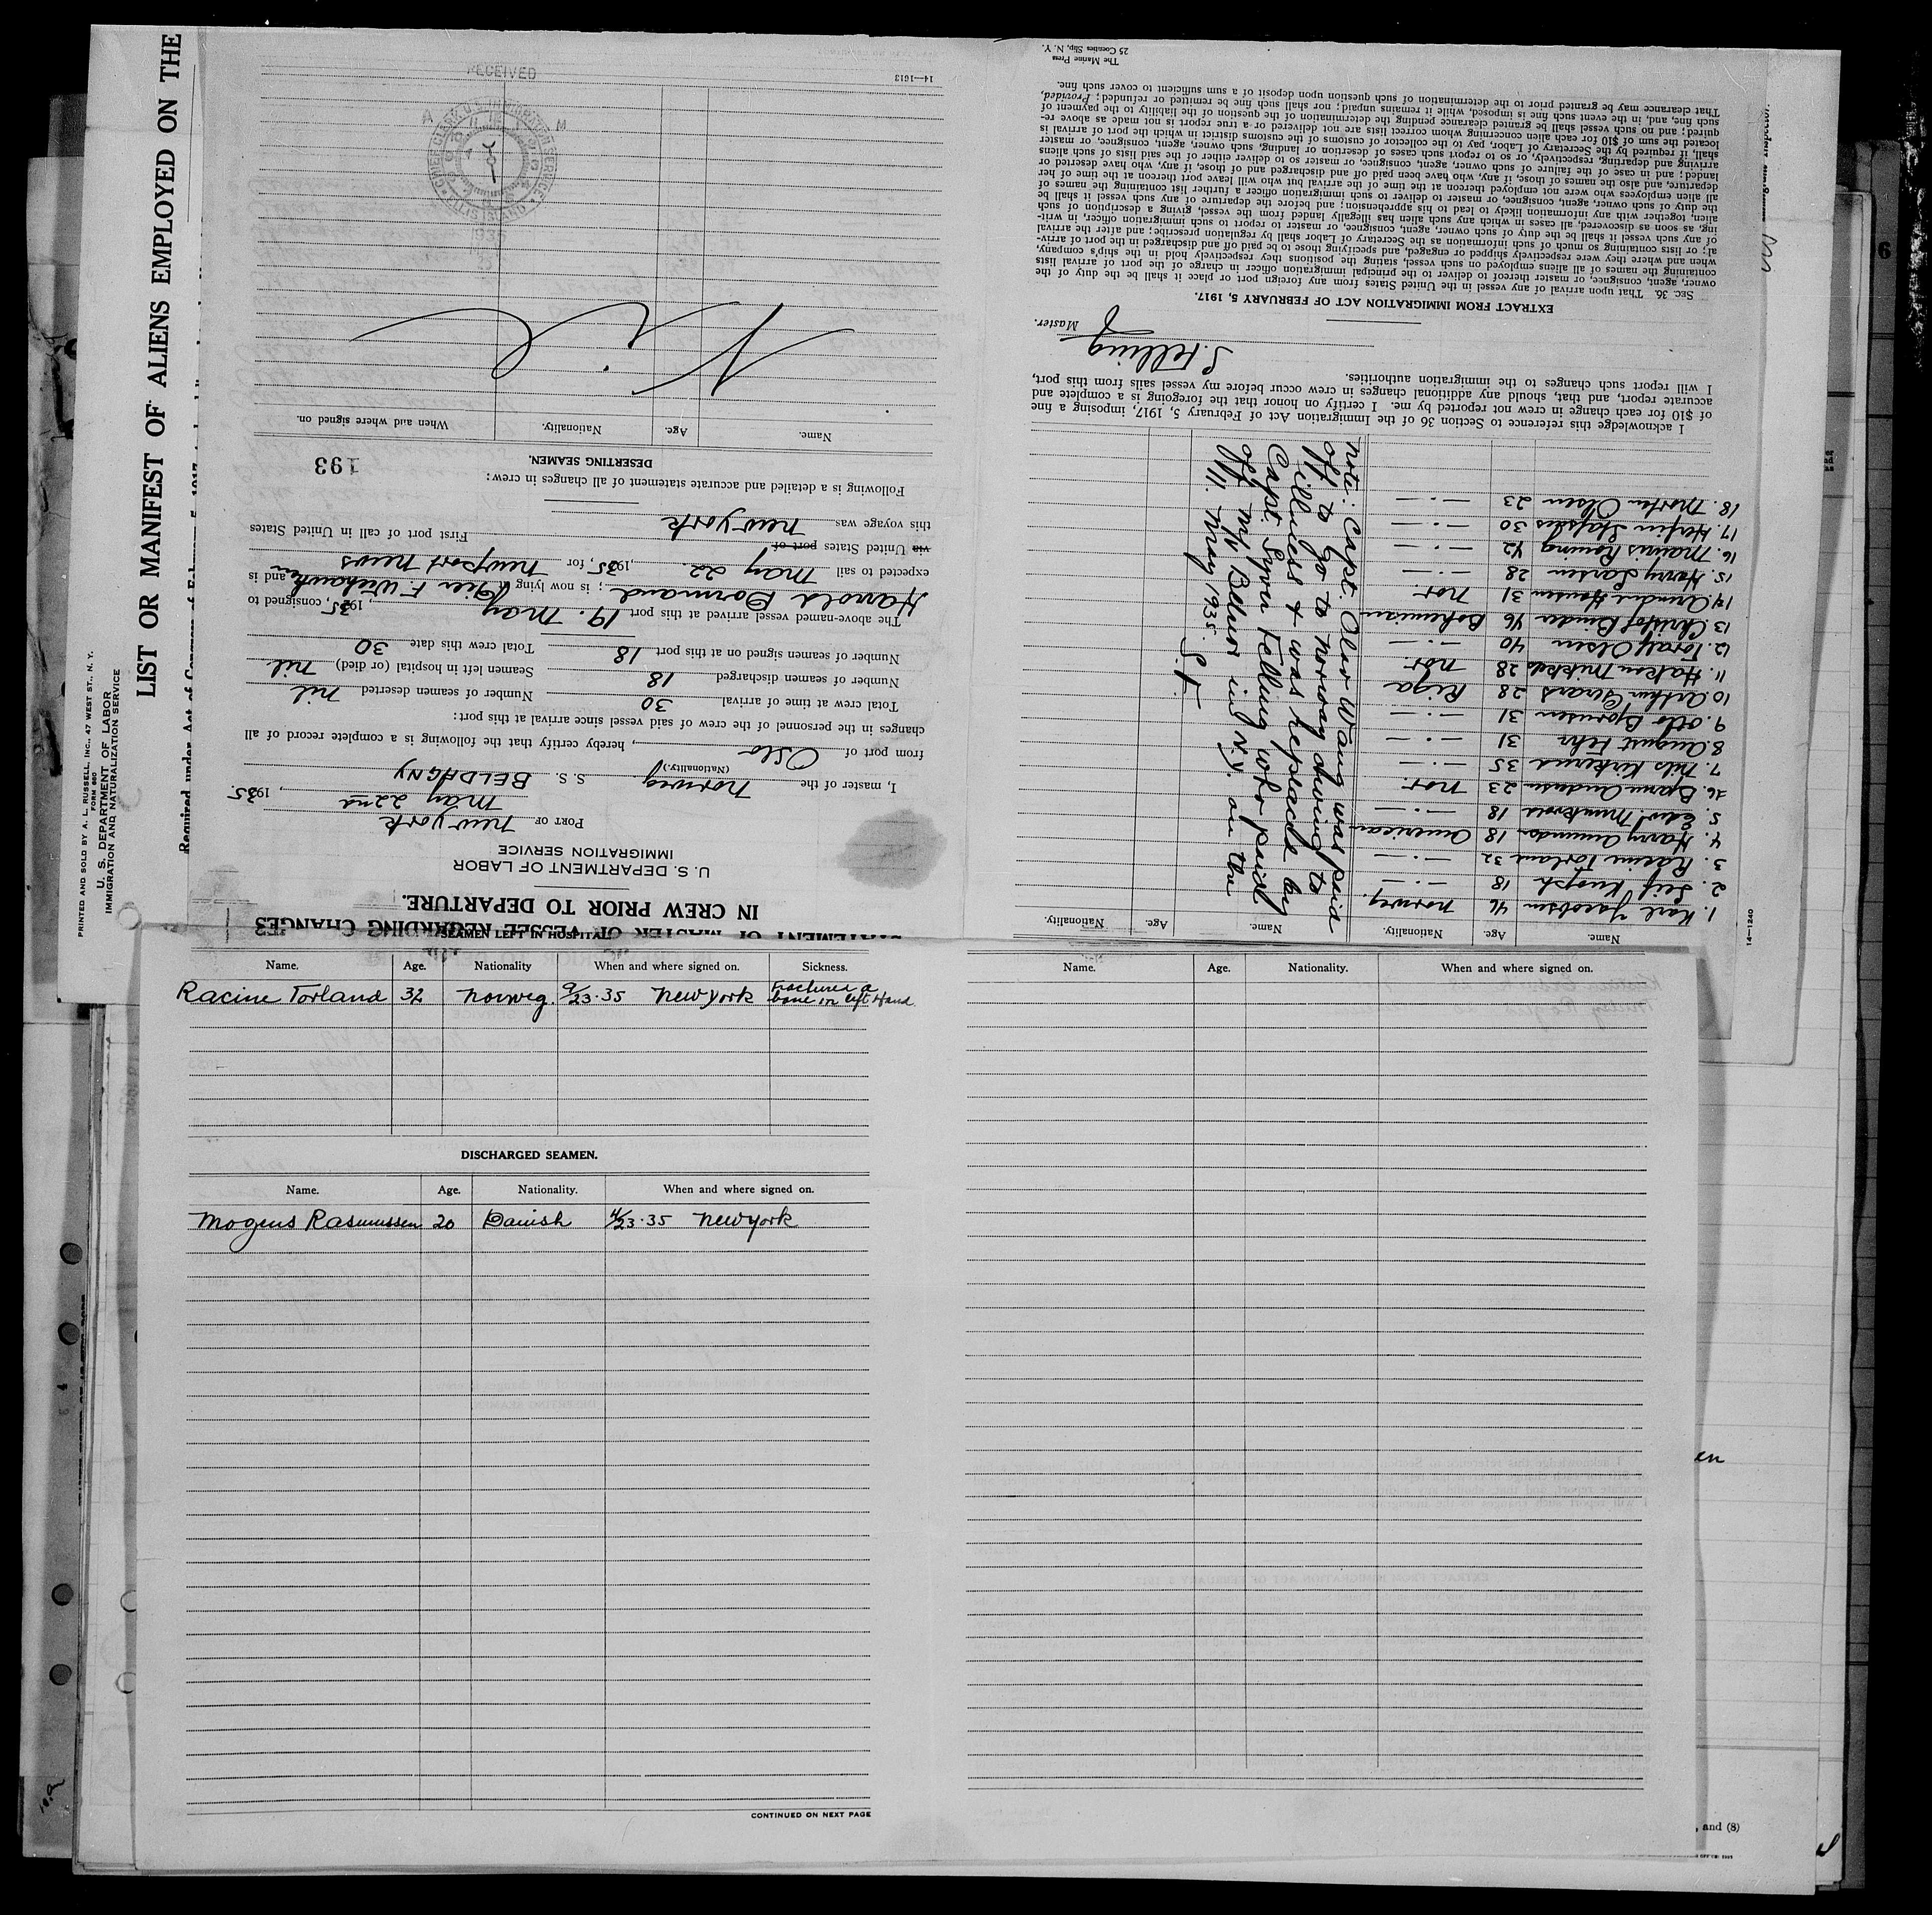 PRINTED AND SOLD BY A. L. RUSSELL, INC., 47 WEST ST., N. Y.
FORM 680
U. S. DEPARTMENT OF LABOR
IMMIGRATION AND NATURALIZATION SERVICE
LIST OR MANIFEST OF ALIENS EMPLOYED ON THE
Required under Act of Congress of February 5, 1917
STATEMENT OF MASTER OF VESSEL REGARDING CHANGES
IN CREW PRIOR TO DEPARTURE.
U. S. DEPARTMENT OF LABOR
IMMIGRATION SERVICE
PORT OF New York
May 22nd, 1935.
I, master of the Norweg S. S. BELDAGNY
(Nationality.)
from port of Oslo, hereby certify that the following is a complete record of all
changes in the personnel of the crew of said vessel since arrival at this port:
Total crew at time of arrival 30 Number of seamen deserted nil
Number of seamen discharged 18 Seamen left in hospital (or died) nil
Number of seamen signed on at this port 18 Total crew this date 30
The above-named vessel arrived at this port 19. May, 1935, consigned to
Harrold Dormand; is now lying Pier F. Weehawken and is
expected to sail May 22., 1935, for Newport News
via United States port of First port of call in United States
this voyage was New York
Following is a detailed and accurate statement of all changes in crew:
DESERTING SEAMEN.
193
Name. Age. Nationality. When and where signed on.
Nil
RECEIVED
A M
ELLIS ISLAND
14—1613
Name. Age. Nationality. Name. Age. Nationality.
1. Karl Jacobsen 46 Norweg.
2. Leif Knoph 18 —·—
3. Racine Torland 32 —·—
4. Harry Amundsen 18 American
5. Edw. 18 —·—
6. Bjarne Andersen 23 Nor.
7. Nils Kirkerud 35 —·—
8. August Fehr 31 —·—
9. Otto Bjornsen 31 —·—
10 Arthur 28 Riga
11. Hakon Mikkels 28 Nor.
12. Toralf Olsen 40 —·—
13. Christof Binder 46 Bohemian
14. Arndus Hansen 31 Nor.
15. Harry Larsen 28 —·—
16. Marius Ronning 42 —·—
17. 30 —·—
18. Morten Olsen 23 —·—
Note: Capt. Olav Wang was paid
off to go to Norway owing to
illness & was replaced by
Capt. Syver Felling who paid
off M/S Belnor in N.Y. on the
11. May 1935. S. F.
I acknowledge this reference to Section 36 of the Immigration Act of February 5, 1917, imposing a fine
of $10 for each change in crew not reported by me. I certify on honor that the foregoing is a complete and
accurate report, and that, should any additional changes in crew occur before my vessel sails from this port,
I will report such changes to the immigration authorities.
S. Felling
Master.
EXTRACT FROM IMMIGRATION ACT OF FEBRUARY 5, 1917.
SEC. 36. That upon arrival of any vessel in the United States from any foreign port or place it shall be the duty of the
owner, agent, consignee, or master thereof to deliver to the principal immigration officer in charge of the port of arrival lists
containing the names of all aliens employed on such vessel, stating the positions they respectively hold in the ship's company,
when and where they were respectively shipped or engaged, and specifying those to be paid off and discharged in the port of arriv-
al; or lists containing so much of such information as the Secretary of Labor shall by regulation prescribe; and after the arrival
of any such vessel it shall be the duty of such owner, agent, consignee, or master to report to such immigration officer, in writ-
ing, as soon as discovered, all cases in which any such alien has illegally landed from the vessel, giving a description of such
alien, together with any information likely to lead to his apprehension; and before the departure of any such vessel it shall be
the duty of such owner, agent, consignee, or master to deliver to such immigration officer a further list containing the names of
all alien employees who were not employed thereon at the time of the arrival but who will leave port thereon at the time of her
departure, and also the names of those, if any, who have been paid off and discharged and of those, if any, who have deserted or
landed; and in case of the failure of such owner, agent, consignee, or master so to deliver either of the said lists of such aliens
arriving and departing, respectively, or so to report such cases of desertion or landing, such owner, agent, consignee, or master
shall, if required by the Secretary of Labor, pay to the collector of customs of the customs district in which the port of arrival is
located the sum of $10 for each alien concerning whom correct lists are not delivered or a true report is not made as above re-
quired; and no such vessel shall be granted clearance pending the determination of the question of the liability to the payment of
such fine, and, in the event such fine is imposed, while it remains unpaid; nor shall such fine be remitted or refunded; Provided,
That clearance may be granted prior to the determination of such question upon deposit of a sum sufficient to cover such fine.
The Marine Press
25 Coenties Slip, N. Y.
14—1240
SEAMEN LEFT IN HOSPITAL
Name. Age. Nationality When and where signed on. Sickness.
Racine Torland 32 Norweg. 9/23·35 New York Fractured a bone in left Hand
DISCHARGED SEAMEN.
Name. Age. Nationality. When and where signed on.
Mogens Rasmussen 20 Danish 4/23·35 New York
CONTINUED ON NEXT PAGE
Name. Age. Nationality. When and where signed on.
6
en
, and (8)